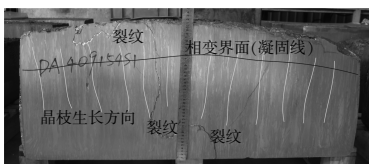 裂纹
相变界面(凝固线)
DA40915451
晶枝生长方向
裂纹
裂纹